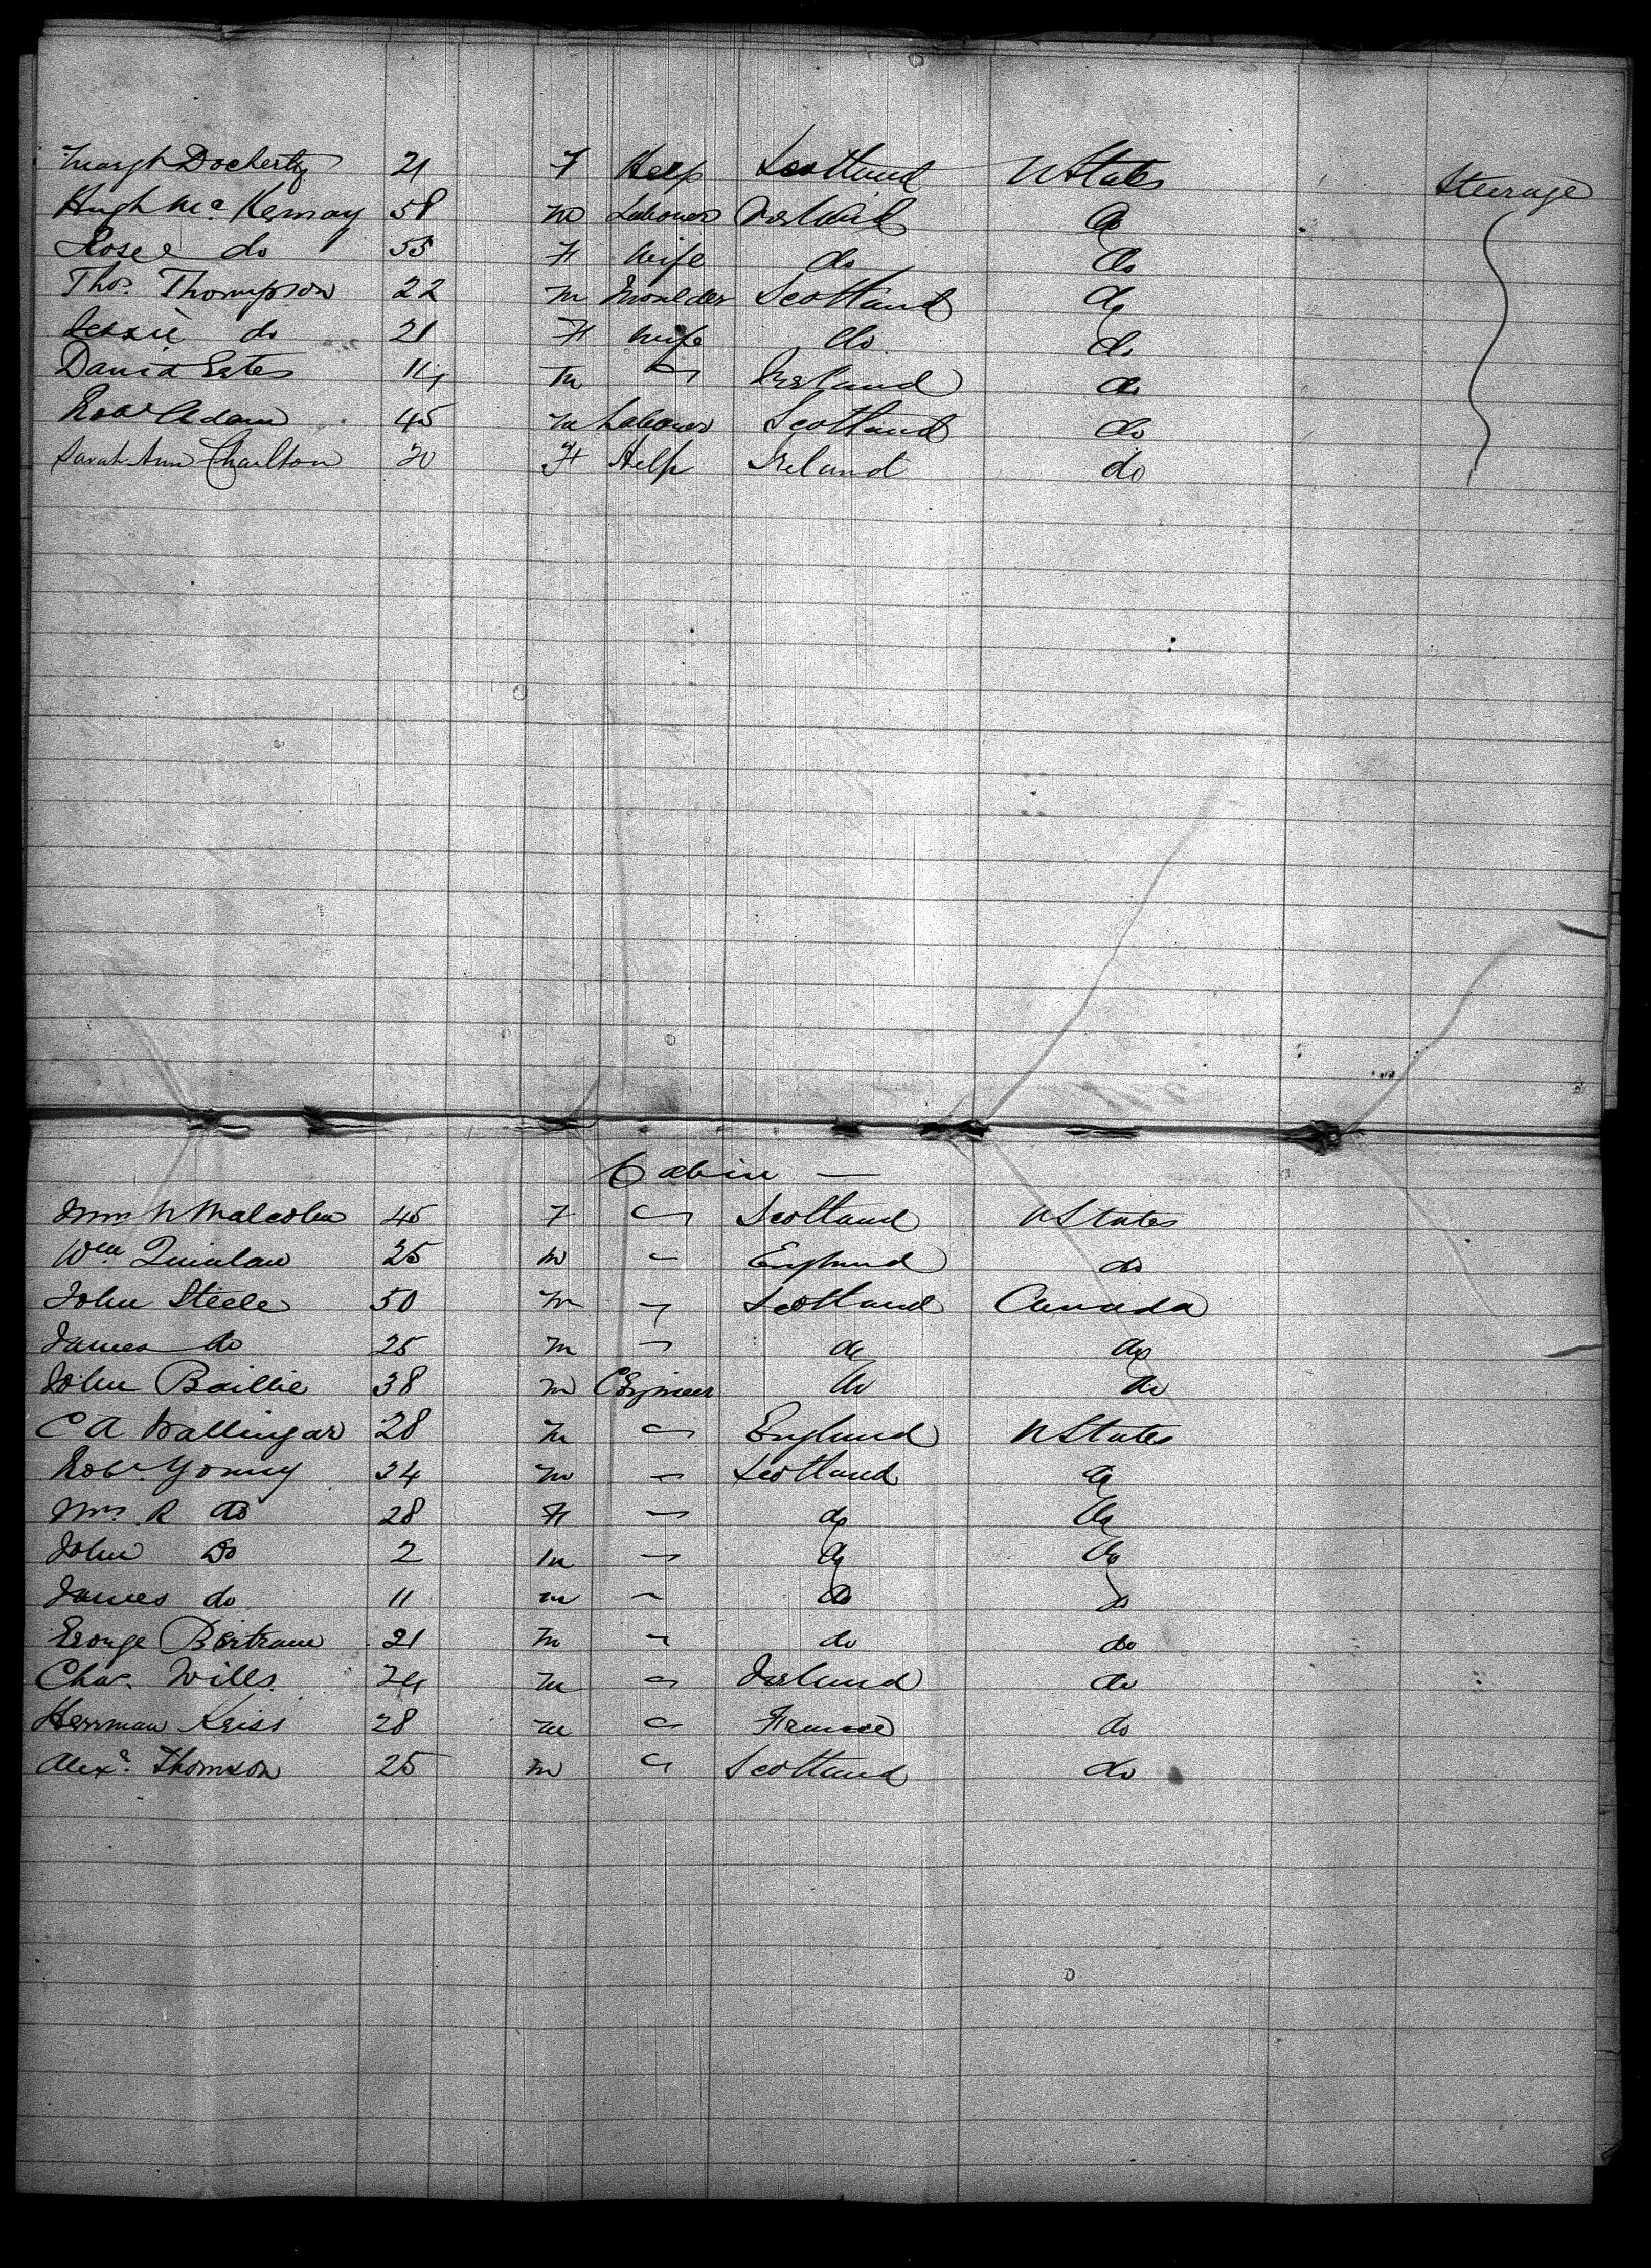 Margt Docherty 21 F Help Scotland U States Steerage
Hugh Mc Kernay 58 M Labourer Ireland do
Rose do 55 F Wife do do
Thos. Thompson 22 M Moulder Scotland do
Jessie do 21 F Wife do do
David Estes 11 M " Ireland do
Robt Adam 45 M Labourer Scotland do
Sarah Ann Charlton 20 F Help Ireland do
Cabin —
Malcolm 45 F " Scotland U States
Wm. Quinlan 25 M " England do
John Steele 50 M " Scotland Canada
James do 25 M " do do
John Baillie 38 M C Engineer do do
C A Wallingar 28 M " England U States
Robt. Young 34 M " Scotland do
Mrs. R do 28 F " do do
John Do 2 M " do do
James do 11 M " do do
George Bertram 21 M " do do
Chas. Wills 24 M " Ireland do
Herrman Keiss 28 M " France do
Alexr. Thomson 25 M " Scotland do